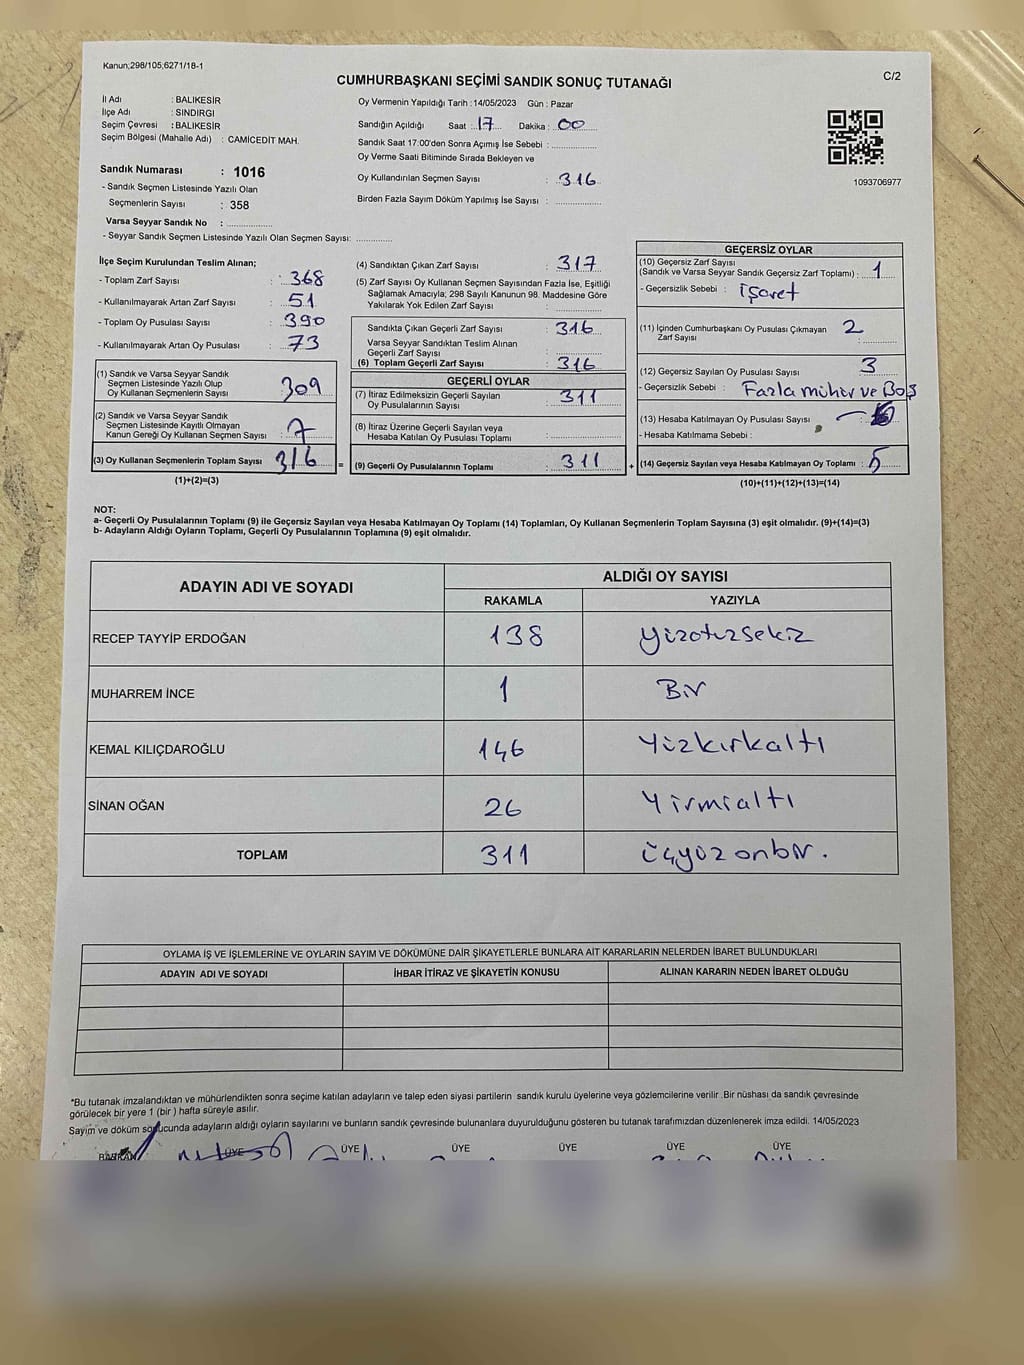 Kanun;298/105,6271/18-1
C/2
CUMHURBAŞKANI SEÇİMİ SANDIK SONUÇ TUTANAĞI
İl Adı : BALIKESİR
İlçe Adı : SINDIRGI
Seçim Çevresi : BALIKESİR
Seçim Bölgesi (Mahalle Adı) : CAMİCEDİT MAH.
Sandık Numarası : 1016
- Sandık Seçmen Listesinde Yazılı Olan
Seçmenlerin Sayısı : 358
Varsa Seyyar Sandık No :
- Seyyar Sandık Seçmen Listesinde Yazılı Olan Seçmen Sayısı:
Oy Vermenin Yapıldığı Tarih : 14/05/2023 Gün : Pazar
Sandığın Açıldığı Saat : 17 Dakika : 00
Sandık Saat 17:00'den Sonra Açımış İse Sebebi :
Oy Verme Saati Bitiminde Sırada Bekleyen ve
Oy Kullandırılan Seçmen Sayısı : 316
Birden Fazla Sayım Döküm Yapılmış İse Sayısı :
1093706977
İlçe Seçim Kurulundan Teslim Alınan;
- Toplam Zarf Sayısı : 368
- Kullanılmayarak Artan Zarf Sayısı : 51
- Toplam Oy Pusulası Sayısı : 390
- Kullanılmayarak Artan Oy Pusulası : 73
(1) Sandık ve Varsa Seyyar Sandık
Seçmen Listesinde Yazılı Olup
Oy Kullanan Seçmenlerin Sayısı : 309
(2) Sandık ve Varsa Seyyar Sandık
Seçmen Listesinde Kayıtlı Olmayan
Kanun Gereği Oy Kullanan Seçmen Sayısı : 7
(3) Oy Kullanan Seçmenlerin Toplam Sayısı 316
(1)+(2)=(3)
(4) Sandıktan Çıkan Zarf Sayısı : 317
(5) Zarf Sayısı Oy Kullanan Seçmen Sayısından Fazla İse, Eşitliği
Sağlamak Amacıyla; 298 Sayılı Kanunun 98. Maddesine Göre
Yakılarak Yok Edilen Zarf Sayısı :
Sandıkta Çıkan Geçerli Zarf Sayısı : 316
Varsa Seyyar Sandıktan Teslim Alınan
Geçerli Zarf Sayısı :
(6) Toplam Geçerli Zarf Sayısı : 316
GEÇERLİ OYLAR
(7) İtiraz Edilmeksizin Geçerli Sayılan
Oy Pusulalarının Sayısı : 311
(8) İtiraz Üzerine Geçerli Sayılan veya
Hesaba Katılan Oy Pusulası Toplamı :
= (9) Geçerli Oy Pusulalarının Toplamı : 311 +
GEÇERSİZ OYLAR
(10) Geçersiz Zarf Sayısı
(Sandık ve Varsa Seyyar Sandık Geçersiz Zarf Toplamı) : 1
- Geçersizlik Sebebi : işaret
(11) İçinden Cumhurbaşkanı Oy Pusulası Çıkmayan
Zarf Sayısı : 2
(12) Geçersiz Sayılan Oy Pusulası Sayısı : 3
- Geçersizlik Sebebi : Fazla mühür ve Boş
(13) Hesaba Katılmayan Oy Pusulası Sayısı :
- Hesaba Katılmama Sebebi :
(14) Geçersiz Sayılan veya Hesaba Katılmayan Oy Toplamı : 5
(10)+(11)+(12)+(13)=(14)
NOT:
a- Geçerli Oy Pusulalarının Toplamı (9) ile Geçersiz Sayılan veya Hesaba Katılmayan Oy Toplamı (14) Toplamları, Oy Kullanan Seçmenlerin Toplam Sayısına (3) eşit olmalıdır. (9)+(14)=(3)
b- Adayların Aldığı Oyların Toplamı, Geçerli Oy Pusulalarının Toplamına (9) eşit olmalıdır.
ADAYIN ADI VE SOYADI
ALDIĞI OY SAYISI
RAKAMLA YAZIYLA
RECEP TAYYİP ERDOĞAN 138 yüzotuzsekiz
MUHARREM İNCE 1 Bir
KEMAL KILIÇDAROĞLU 146 yüzkırkaltı
SİNAN OĞAN 26 yirmialtı
TOPLAM 311 üçyüz onbir.
OYLAMA İŞ VE İŞLEMLERİNE VE OYLARIN SAYIM VE DÖKÜMÜNE DAİR ŞİKAYETLERLE BUNLARA AİT KARARLARIN NELERDEN İBARET BULUNDUKLARI
ADAYIN ADI VE SOYADI İHBAR İTİRAZ VE ŞİKAYETİN KONUSU ALINAN KARARIN NEDEN İBARET OLDUĞU
*Bu tutanak imzalandıktan ve mühürlendikten sonra seçime katılan adayların ve talep eden siyasi partilerin sandık kurulu üyelerine veya gözlemcilerine verilir .Bir nüshası da sandık çevresinde
görülecek bir yere 1 (bir ) hafta süreyle asılır.
Sayım ve döküm sonucunda adayların aldığı oyların sayılarını ve bunların sandık çevresinde bulunanlara duyurulduğunu gösteren bu tutanak tarafımızdan düzenlenerek imza edildi. 14/05/2023
BAŞKAN ÜYE ÜYE ÜYE ÜYE ÜYE ÜYE